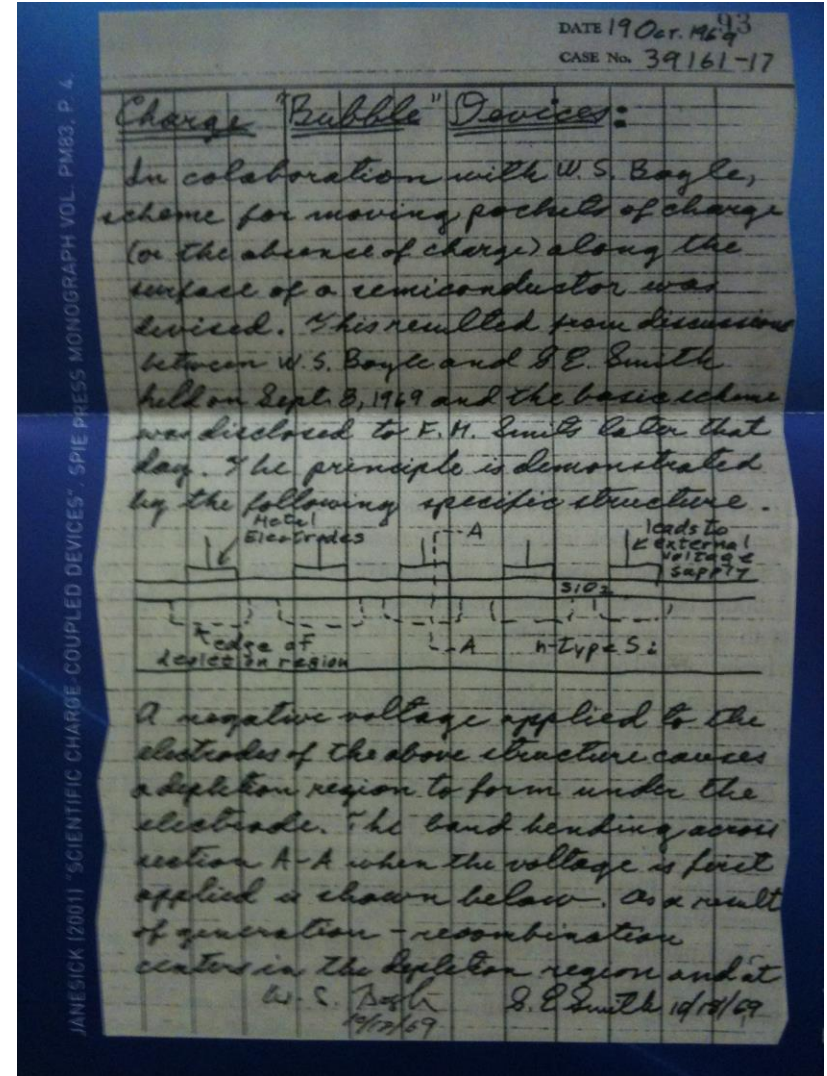 93
DATE 19 Oct. 1969
CASE No. 39161-17
Charge "Bubble" Devices:
In colaboration with W. S. Boyle,
scheme for moving pockets of charge
(or the absence of charge) along the
surface of a semiconductor was
devised. This resulted from discussions
between W. S. Boyle and G E. Smith
held on Sept. 8, 1969 and the basic scheme
was disclosed to F. M. Smits later that
day. The principle is demonstrated
by the following specific structure.
Metal
Electrodes
A
leads to
external
voltage
supply
SiO2
edge of
depletion region
A
n-type Si
A negative voltage applied to the
electrodes of the above structure causes
a depletion region to form under the
electrode. The band bending across
section A-A when the voltage is first
applied is shown below. As a result
of generation - recombination
centers in the depletion region and at
W. S. Boyle
G. E Smith
JANESICK (2001) "SCIENTIFIC CHARGE-COUPLED DEVICES". SPIE PRESS MONOGRAPH VOL. PM83, P. 4.